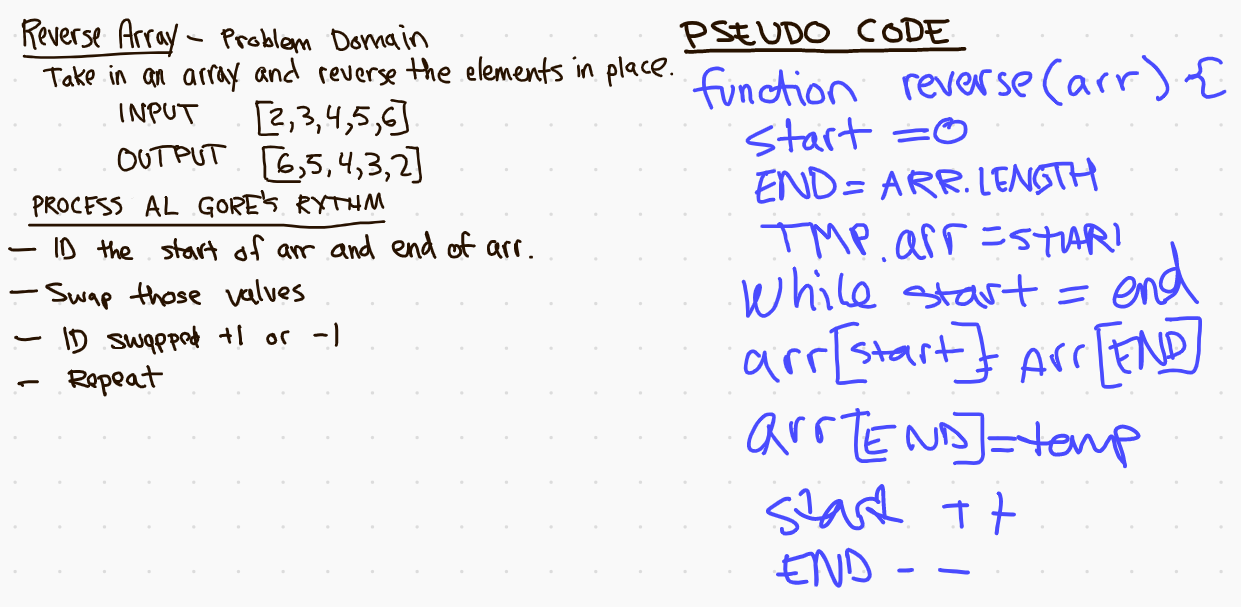 Reverse Array - Problem Domain
Take in an array and reverse the elements in place.
INPUT [2,3,4,5,6]
OUTPUT [6,5,4,3,2]
PROCESS AL GORE'S RYTHM
- ID the start of arr and end of arr.
- Swap those values
- ID swapped +1 or -1
- Repeat
PSEUDO CODE
function reverse(arr) {
start =0
END= ARR.LENGTH
TMP.arr =START
While start = end
arr[start]= Arr[END]
arr[END]=temp
start ++
END --